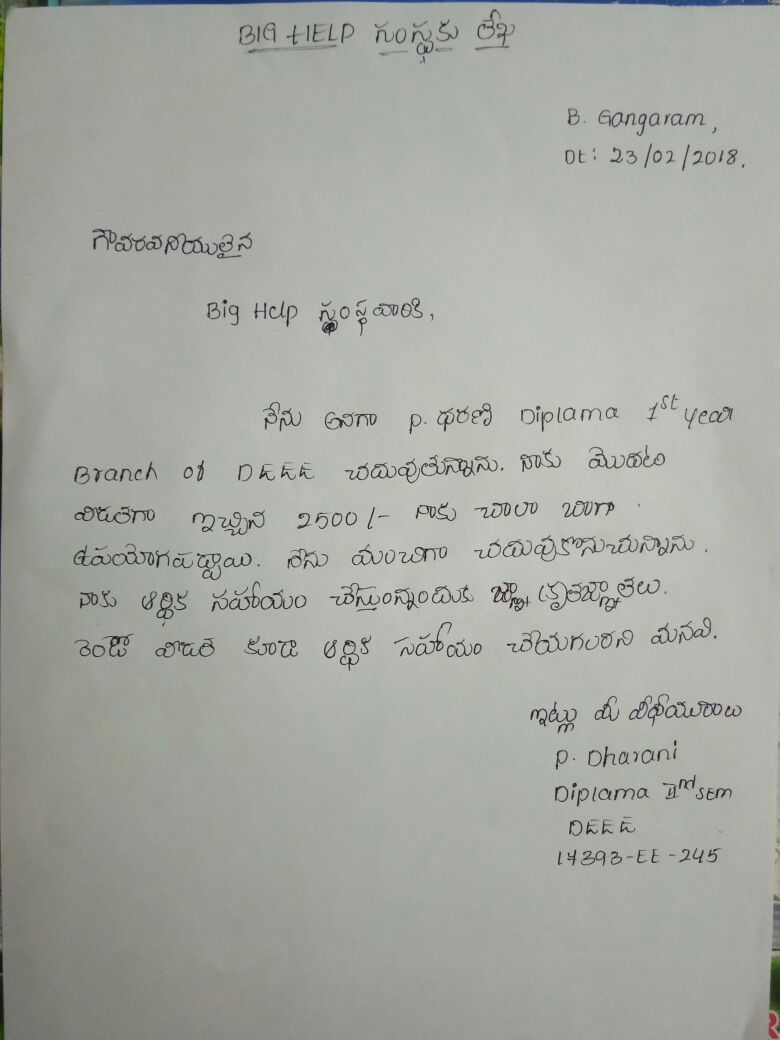 BIG HELP సంస్థకు లేఖ
B. Gangaram,
Dt: 23/02/2018.
గౌవరవనియులైన
Big Help సంస్థవారికి,
నేను అనగా P. ధరణి Diplama 1st year
Branch of DEEE చదువుతున్నాను. నాకు మొదటి
విడతగా ఇచ్చిన 2500/- నాకు చాలా బాగా
ఉపయోగపడ్డాయి. నేను మంచిగా చదువుకొనుచున్నాను.
నాకు ఆర్థిక సహాయం చేస్తున్నందుకు కృతజ్ఞతలు.
రెండో విడత కూడా ఆర్థిక సహాయం చేయగలరని మనవి.
ఇట్లు మీ విధేయురాలు
P. Dharani
Diplama IInd SEM
DEEE
17393-EE-245
R